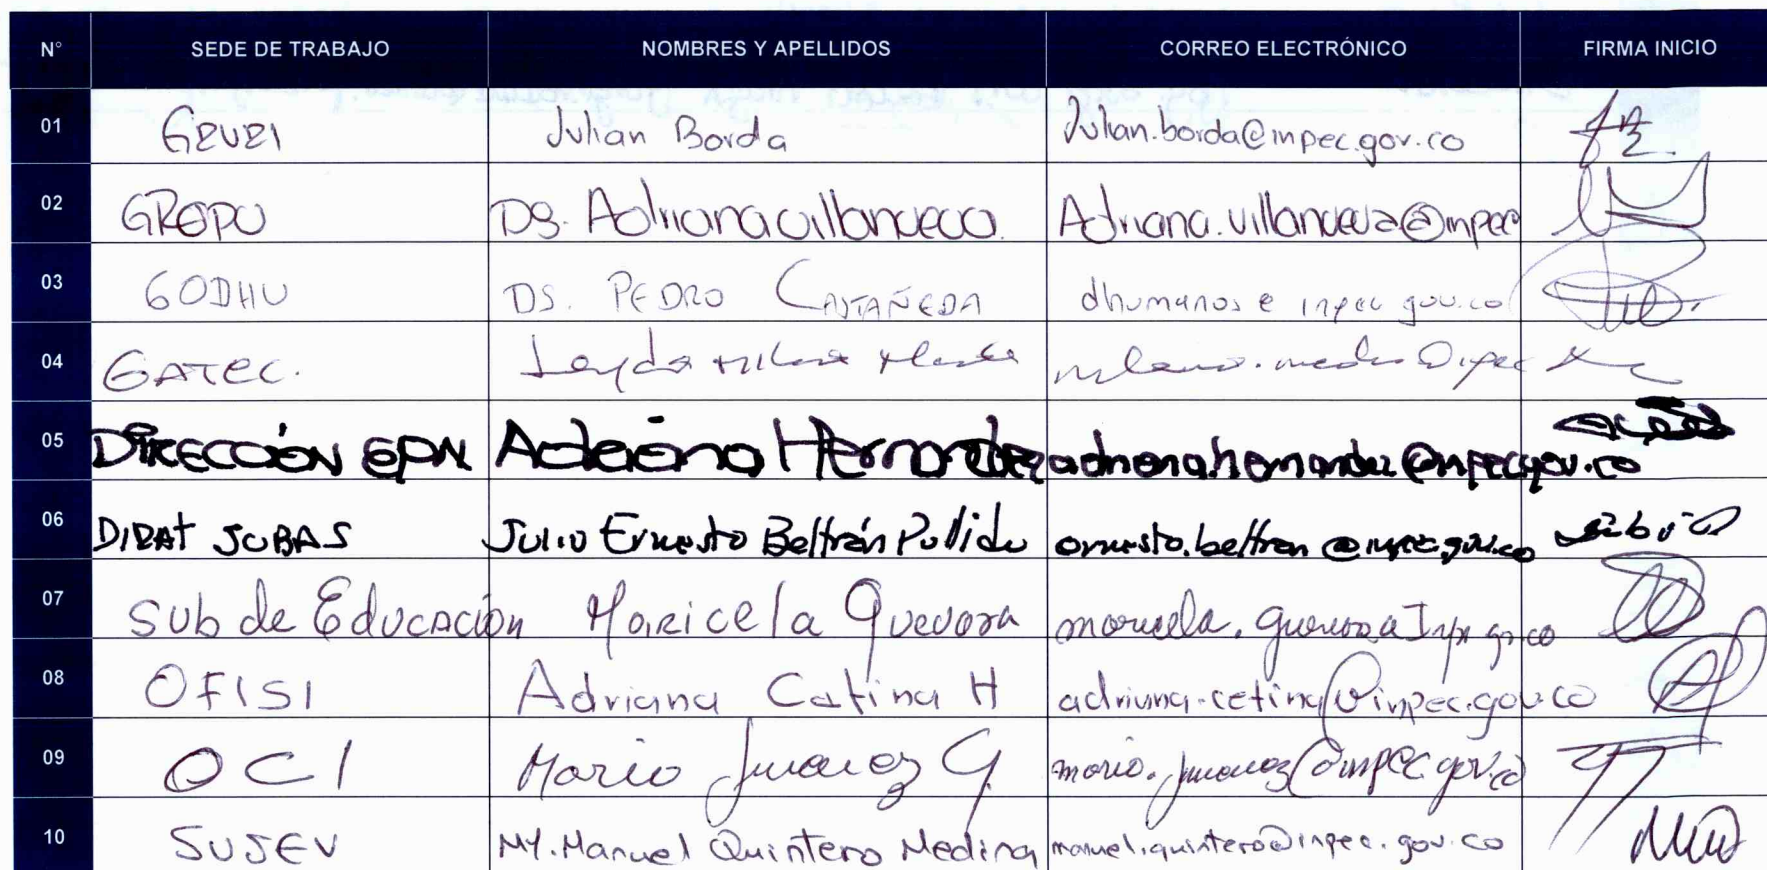 N° SEDE DE TRABAJO NOMBRES Y APELLIDOS CORREO ELECTRÓNICO FIRMA INICIO
01 GRURI Julian Borda Julian.borda@inpec.gov.co
02 GROPU DS. Adriana Villanueva Adriana.villanueva@inpec
03 GODHU DS. PEDRO CASTAÑEDA dhumanos e inpec gov.co
04 GATEC. Leyda
05 DIRECCIÓN EPN Adriana Hernandez adriana.hernandez@inpec.gov.co
06 DIRAT JUBAS Julio Ernesto Beltrán Pulido ernesto.beltran@inpec.gov.co
07 Sub de Educación Maricela Guevara
08 OFISI Adriana Cetina H adriana.cetina@inpec.gov.co
09 OCI Mario Jimenez G mario.jimenez@inpec.gov.co
10 SUSEV MY. Manuel Quintero Medina manuel.quintero@inpec.gov.co